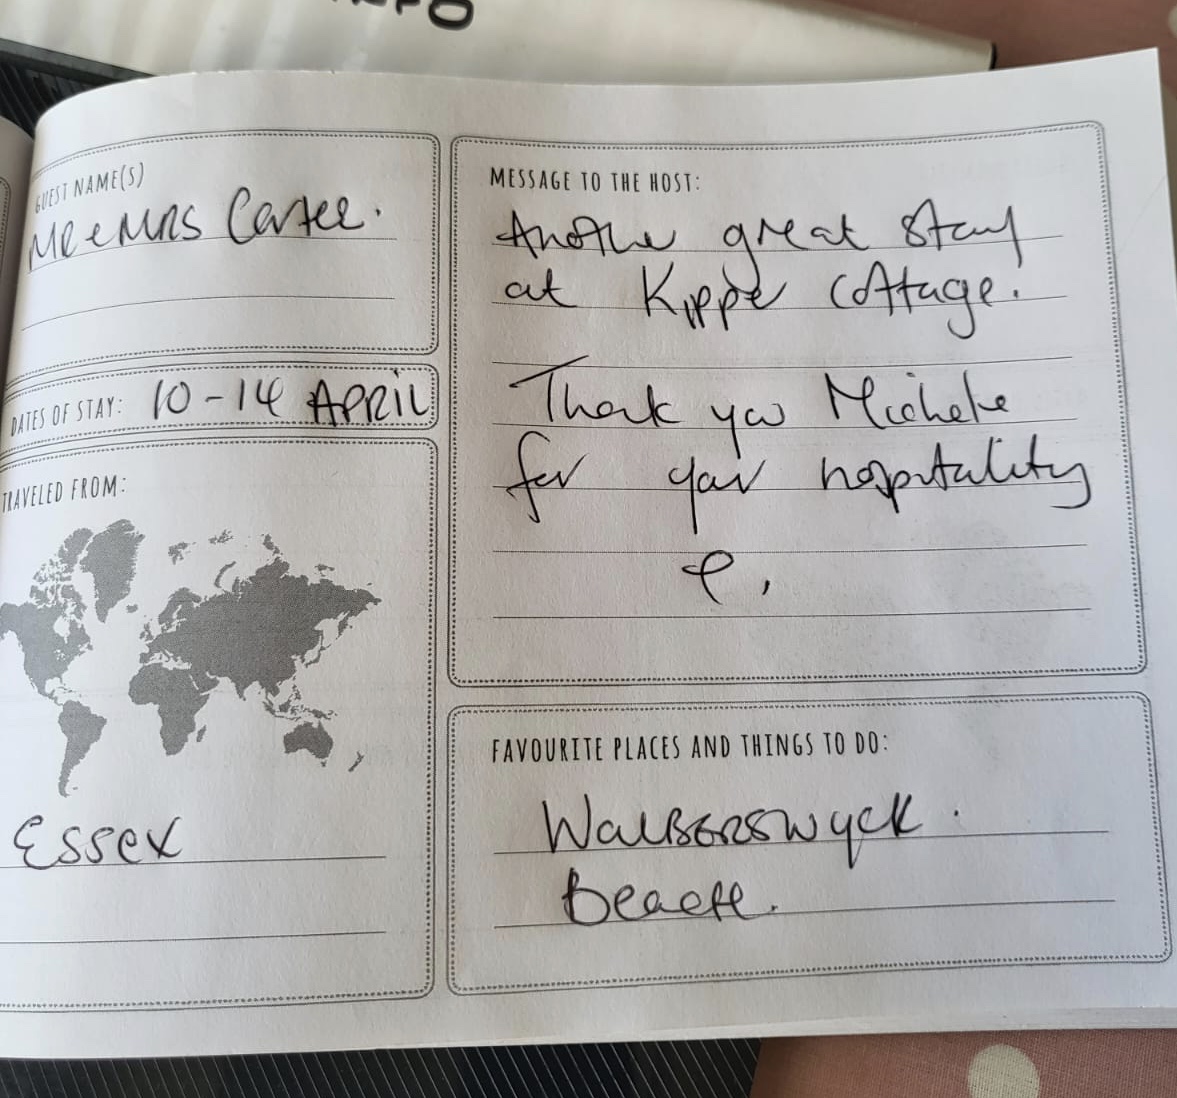 GUEST NAME(S)
Mr & Mrs Carter.
DATES OF STAY: 10-14 APRIL
TRAVELED FROM:
Essex
MESSAGE TO THE HOST:
Another great stay
at Kipper Cottage.
Thank you Michele
for your hospitality
FAVOURITE PLACES AND THINGS TO DO:
Walberswyck.
Beach.